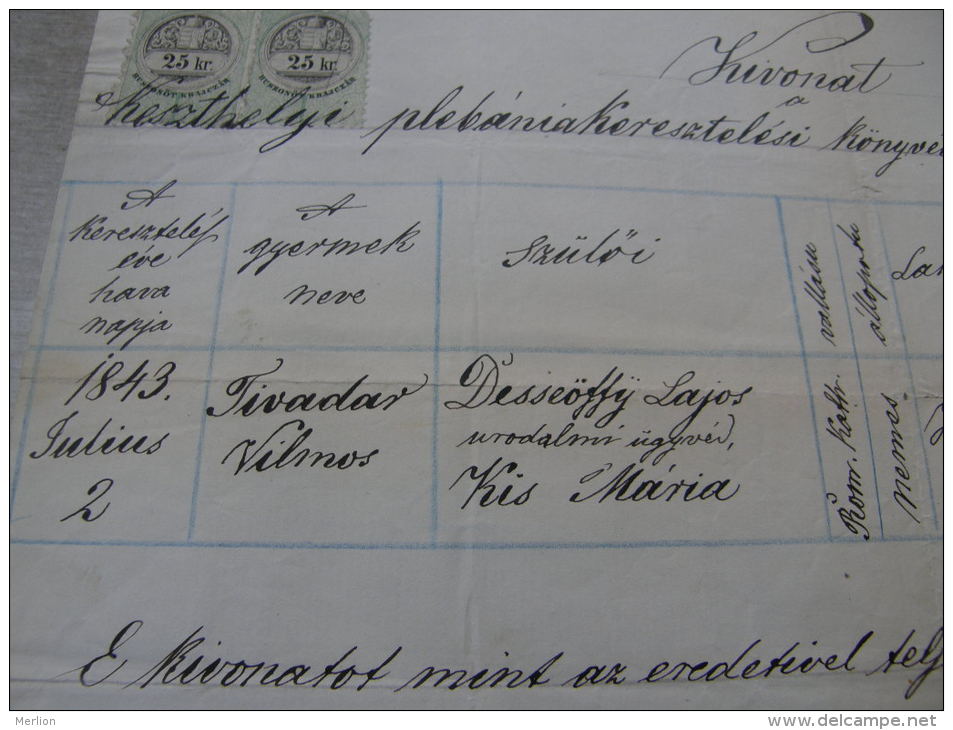 25 kr.
HUSZONÖT KRAJCZÁR
25 kr.
HUSZONÖT KRAJCZÁR
Kivonat
a
keszthelyi plebánia keresztelési könyvé
A keresztelés
eve
hava
napja
A
gyermek
neve
Szülői
vallásu
állapotu
1843.
Julius
2
Tivadar
Vilmos
Desseöffÿ Lajos
urodalmi ügyvéd,
Kis Mária
Rom. Kath.
nemes
E kivonatot mint az eredetivel telj
Merlion
www.delcampe.net